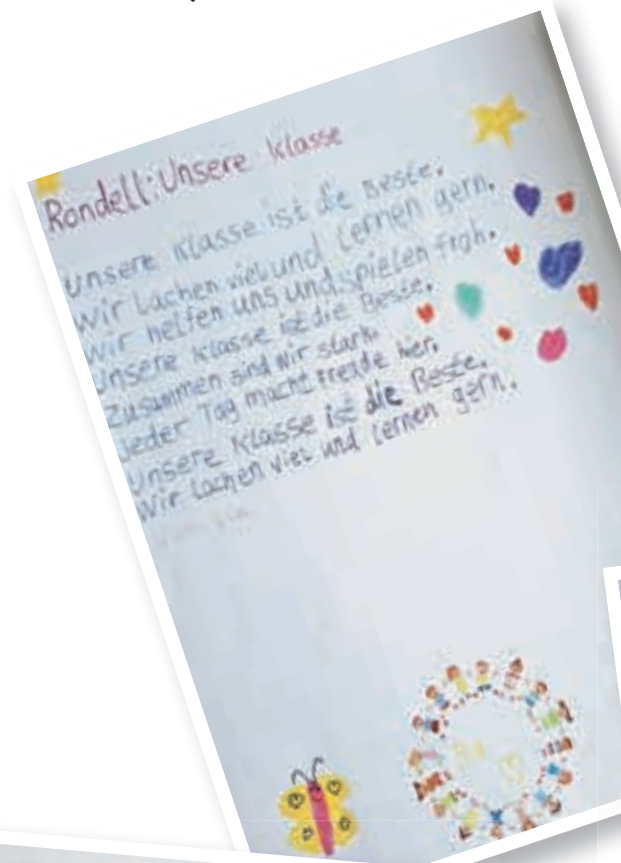 Rondell: Unsere Klasse
Unsere Klasse ist die Beste.
Wir lachen viel und lernen gern.
Wir helfen uns und spielen froh.
Unsere Klasse ist die Beste.
Zusammen sind wir stark.
Jeder Tag macht Freude hier.
Unsere Klasse ist die Beste.
Wir lachen viel und lernen gern.